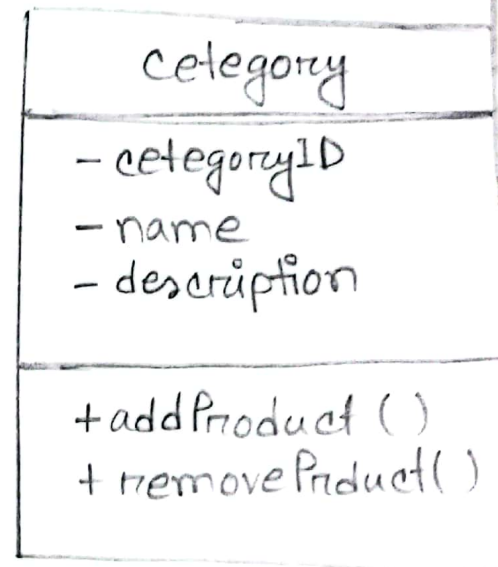 Cetegory
- cetegoryID
- name
- description
+ addProduct ()
+ removePrduct()